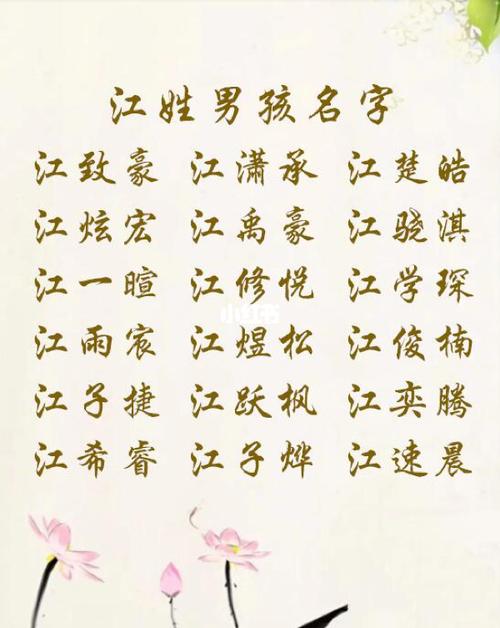 江姓男孩名字
江致豪 江潇承 江楚皓
江炫宏 江禹豪 江骁淇
江一暄 江修悦 江学琛
小红书
江雨宸 江煜松 江俊楠
江子捷 江跃枫 江奕腾
江希睿 江子烨 江速晨